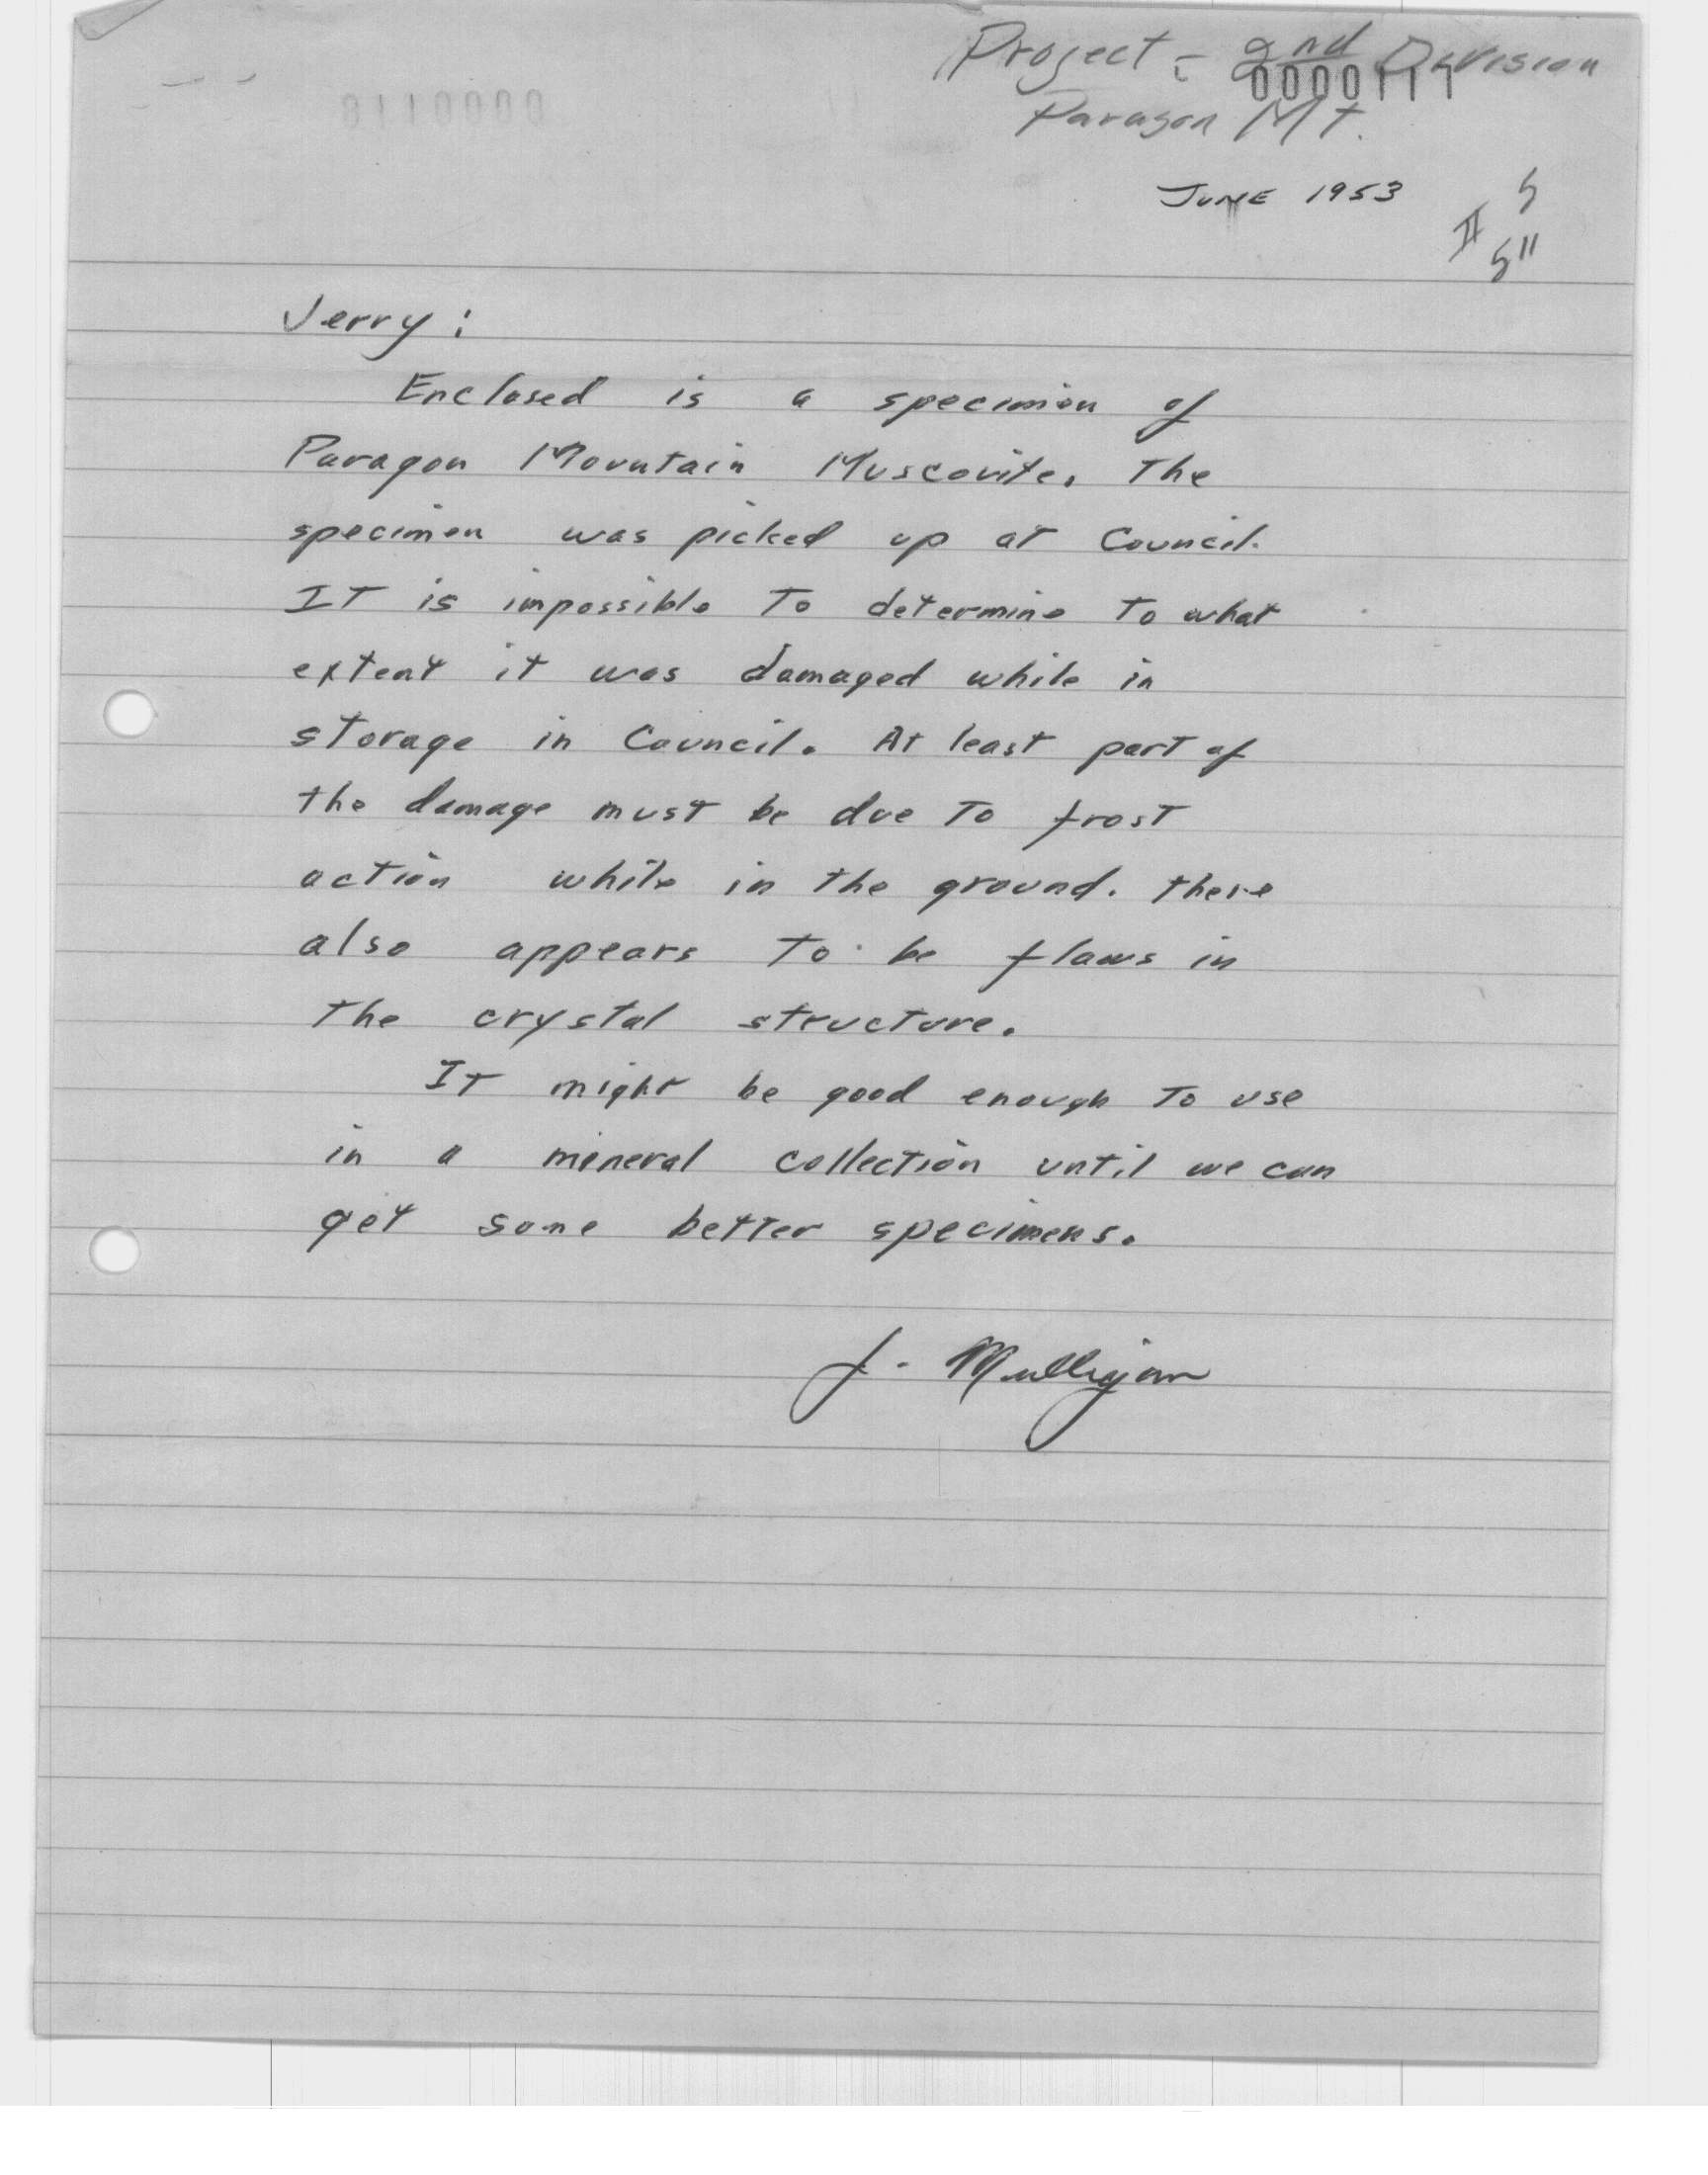 Project - 2nd Division
0000111
Paragon Mt.
JUNE 1953
Jerry:
Enclosed is a specimen of
Paragon Mountain Muscovite. The
specimen was picked up at Council.
It is impossible to determine to what
extent it was damaged while in
storage in Council. At least part of
the damage must be due to frost
action while in the ground. there
also appears to be flaws in
the crystal structure.
It might be good enough to use
in a mineral collection until we can
get some better specimens.
J. Mulligan